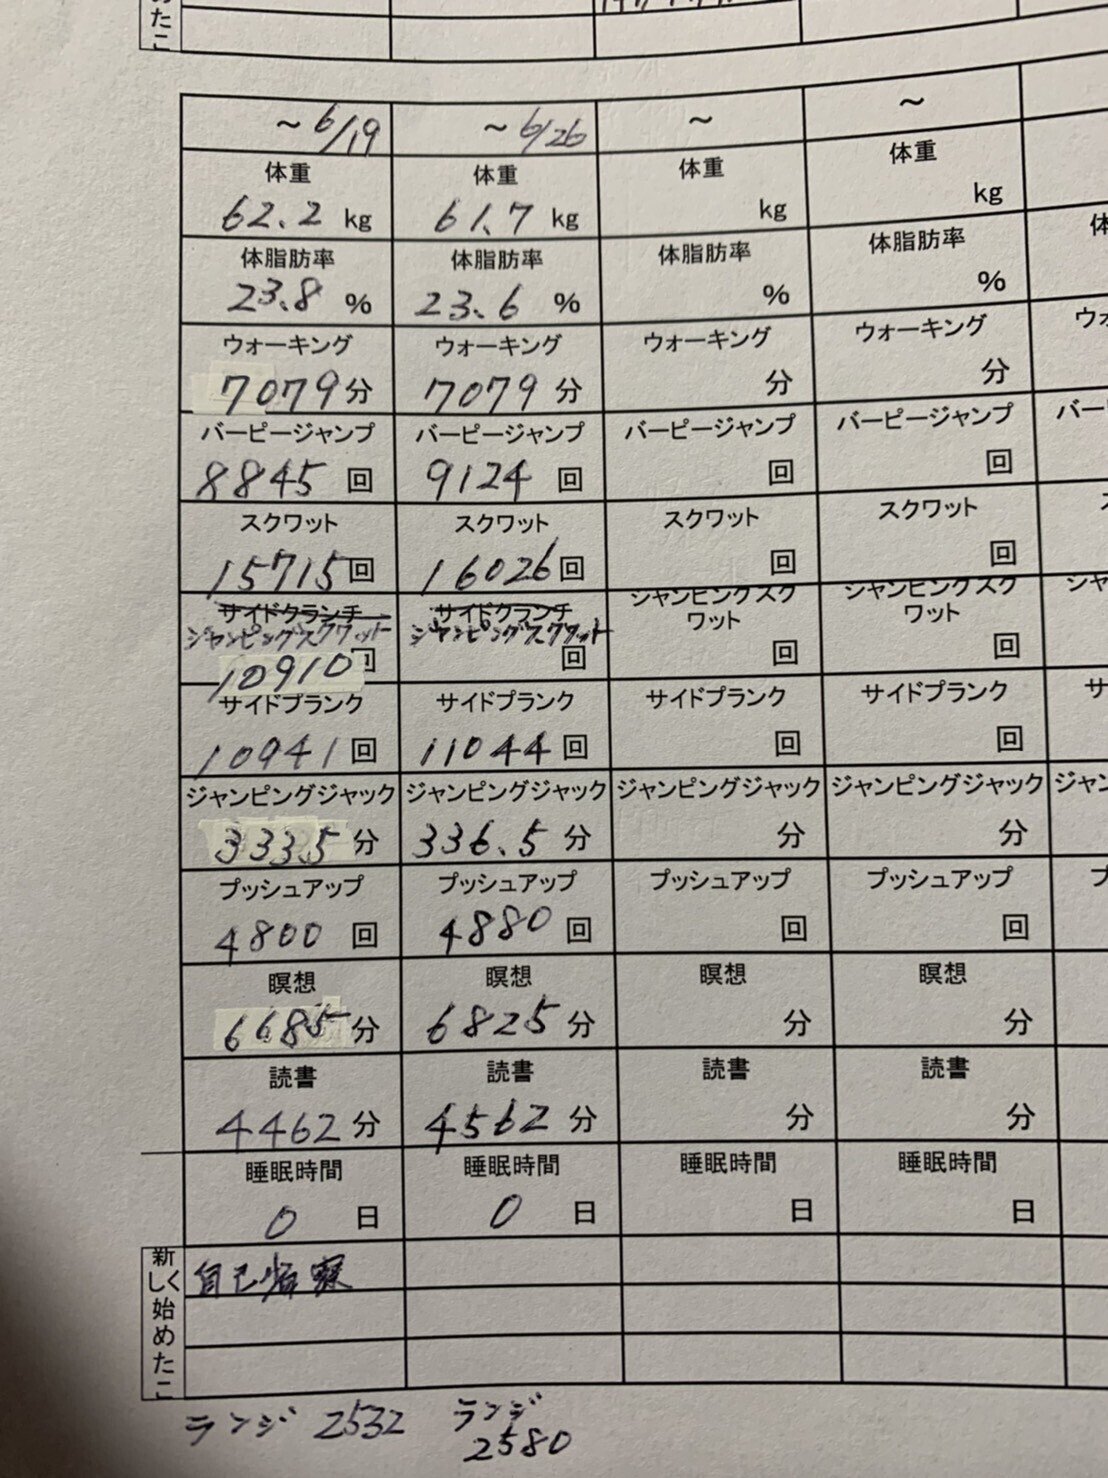 めたこ
~6/19 ~6/26 ~ ~
体重 体重 体重 体重
62.2 kg 61.7 kg kg kg
体脂肪率 体脂肪率 体脂肪率 体脂肪率 体
23.8 % 23.6 % % %
ウォーキング ウォーキング ウォーキング ウォーキング ウォ
7079分 7079分 分 分
バーピージャンプ バーピージャンプ バーピージャンプ バーピージャンプ バー
8845 回 9124 回 回 回
スクワット スクワット スクワット スクワット ス
15715回 16026回 回 回
サイドクランチ サイドクランチ ジャンピングスク ジャンピングスク ジャ
ジャンピングスクワット ジャンピングスクワット ワット ワット
10910回 回 回 回
サイドプランク サイドプランク サイドプランク サイドプランク サ
10941回 11044回 回 回
ジャンピングジャック ジャンピングジャック ジャンピングジャック ジャンピングジャック ジャン
333.5分 336.5分 分 分
プッシュアップ プッシュアップ プッシュアップ プッシュアップ プ
4800 回 4880 回 回 回
瞑想 瞑想 瞑想 瞑想
6685分 6825分 分 分
読書 読書 読書 読書
4462分 4562分 分 分
睡眠時間 睡眠時間 睡眠時間 睡眠時間
0 日 0 日 日 日
新しく始めたこ
自己
ランジ 2532 ランジ
2580